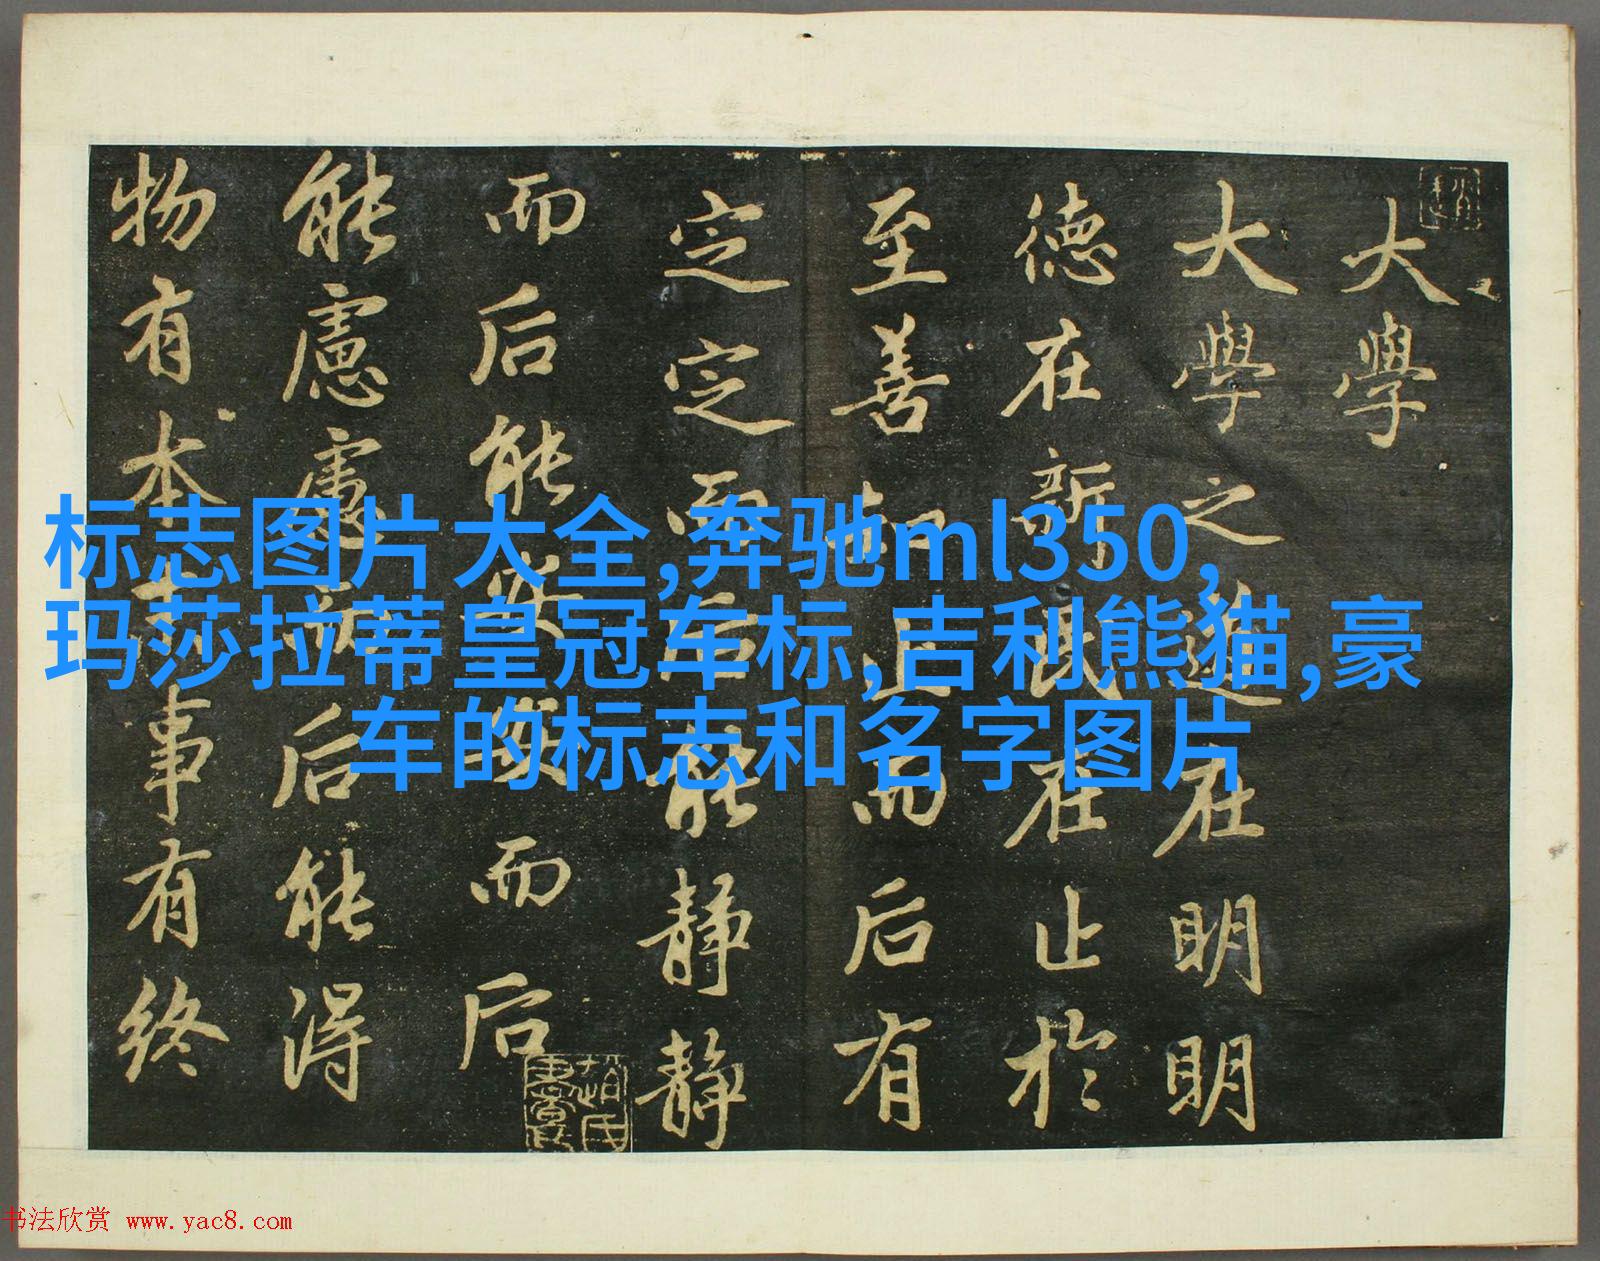 大學
大學之道在明明
德在新民在止於
至善知止而后有
定定而后能静静
而后能安安而后
能慮慮而后能得
物有本末事有終
标志图片大全,奔驰ml350,
玛莎拉蒂皇冠车标,吉利熊猫,豪
车的标志和名字图片
书法欣赏 www.yac8.com